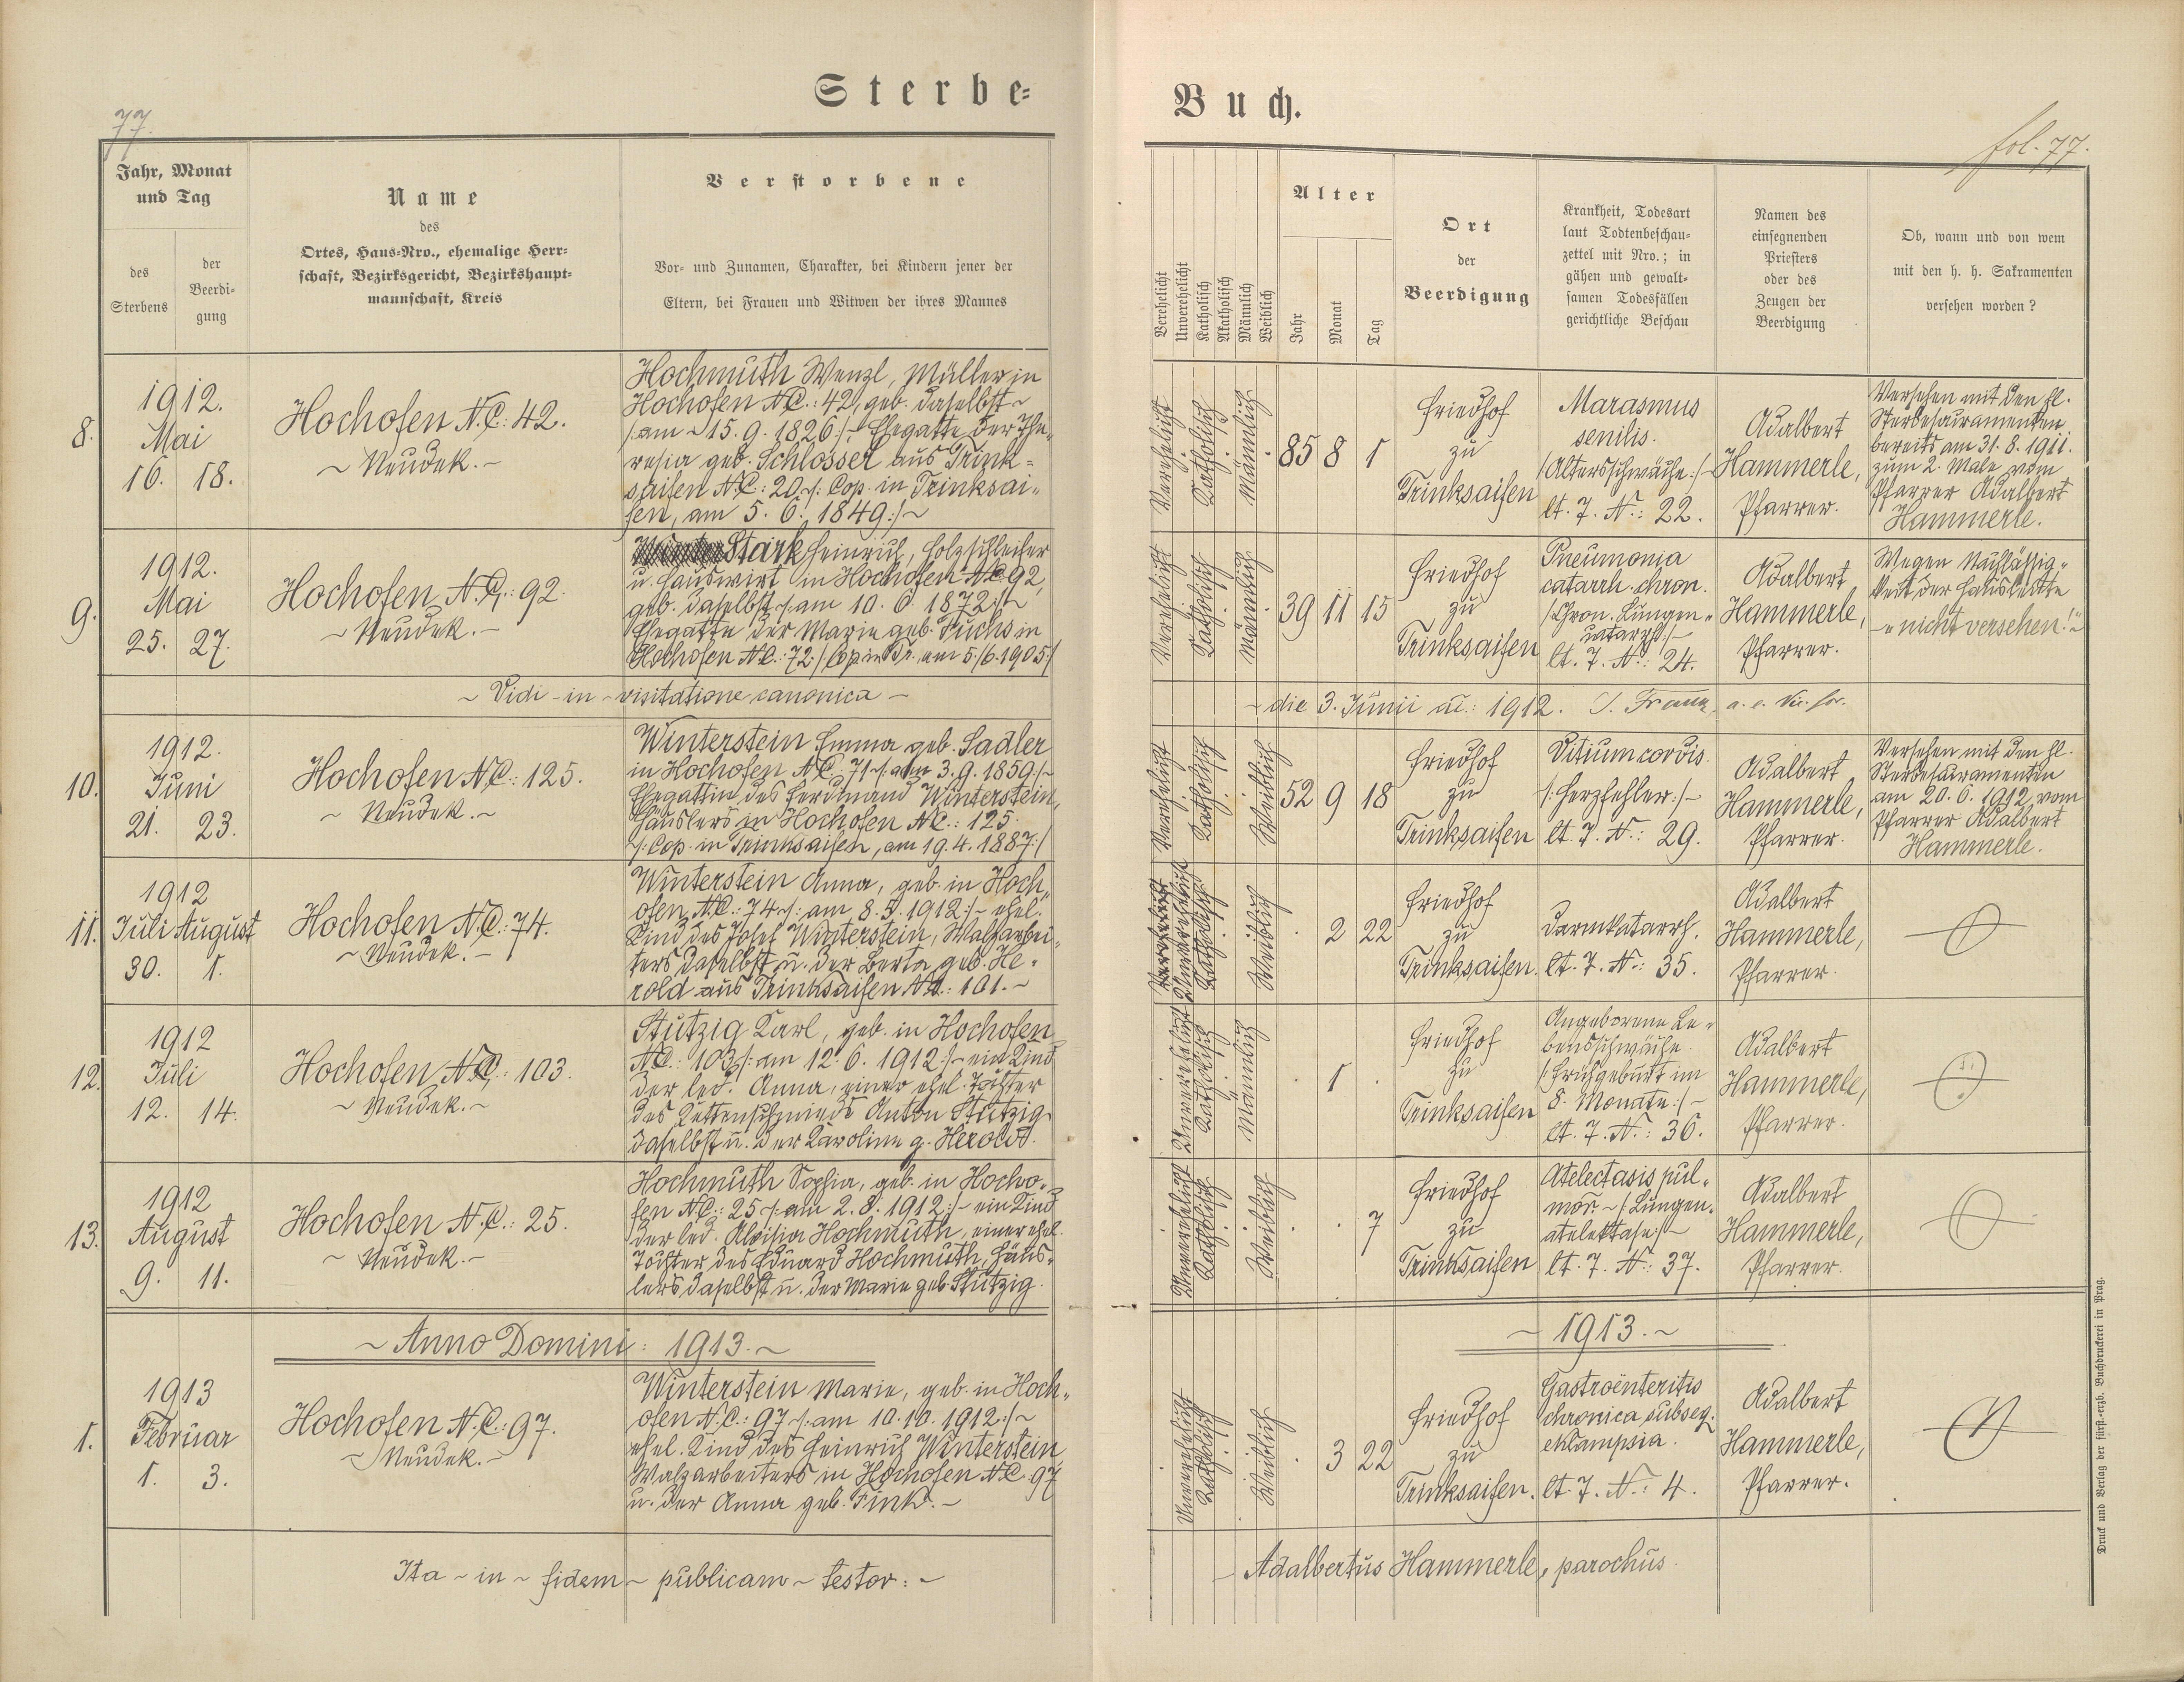 Sterbe=
Buch.
77.
fol. 77.
Jahr, Monat
und Tag
des
Sterbens
der
Beerdi=
gung
Name
des
Ortes, Haus=Nro., ehemalige Herr=
schaft, Bezirksgericht, Bezirkshaupt=
mannschaft, Kreis
Verstorbene
Vor= und Zunamen, Charakter, bei Kindern jener der
Eltern, bei Frauen und Witwen der ihres Mannes
Verehelicht
Unverehelicht
Katholisch
Akatholisch
Männlich
Weiblich
Alter
Jahr
Monat
Tag
Ort
der
Beerdigung
Krankheit, Todesart
laut Todtenbeschau=
zettel mit Nro.; in
gähen und gewalt=
samen Todesfällen
gerichtliche Beschau
Namen des
einsegnenden
Priesters
oder des
Zeugen der
Beerdigung
Ob, wann und von wem
mit den h. h. Sakramenten
versehen worden?
8.
1912.
Mai
16. 18.
Hochofen N.C.: 42.
~ Neudek. ~
Hochmuth Wenzl, Müller in
Hochofen N.C.: 42, geb. daselbst ~
/: am ~ 15. 9. 1826 :/, Ehegatte der The=
resia geb. Schlosser aus Trink=
saifen N.C.: 20 ~/: Cop. in Trinksai=
fen, am 5. 6. 1849 :/ ~
Verehelicht
Katholisch
Männlich
85 8 1
Friedhof
zu
Trinksaifen
Marasmus
senilis.
/Altersschwäche :/ ~
lt. T. N.: 22.
Adalbert
Hammerle,
Pfarrer.
Versehen mit den hl.
Sterbesacramenten
bereits am 31. 8. 1911.
zum 2. Male vom
Pfarrer Adalbert
Hammerle.
9.
1912.
Mai
25. 27.
Hochofen N.C.: 92.
~ Neudek. ~
Stark Heinrich, Holzschleifer
u. Hauswirt in Hochofen N.C. 92,
geb. daselbst ~/: am 10. 6. 1872 :/ ~
Ehegatte der Marie geb. Fuchs in
Hochofen N.C.: 72. /: Cop. in Tr. am 5./6. 1905 :/
Verehelicht
Katholisch
Männlich
39 11 15
Friedhof
zu
Trinksaifen
Pneumonia
catarrh. chron.
/Chron. Lungen=
katarrh/ ~
lt. T. N.: 24.
Adalbert
Hammerle,
Pfarrer.
Wegen Nachlässig=
keit der Hausleute
~ nicht versehen! ~
~ Vidi ~ in ~ visitatione canonica ~
~ die 3. Junii a.: 1912. J. Franz, a. e. Vic. for.
10.
1912.
Juni
21. 23.
Hochofen N.C.: 125.
~ Neudek. ~
Winterstein Emma geb. Sadler
in Hochofen N.C. 71 ~/: am 3. 9. 1859 :/ ~
Ehegattin des Ferdinand Winterstein,
Häuslers in Hochofen N.C.: 125.
~/: Cop. in Trinksaifen, am 19. 4. 1887 :/
Verehelicht
Katholisch
Weiblich
52 9 18
Friedhof
zu
Trinksaifen
Vitium cordis.
/: Herzfehler :/ ~
lt. T. N.: 29.
Adalbert
Hammerle,
Pfarrer.
Versehen mit den hl.
Sterbesacramenten
am 20. 6. 1912 vom
Pfarrer Adalbert
Hammerle.
11.
1912
Juli August
30. 1.
Hochofen N.C.: 74.
~ Neudek. ~
Winterstein Anna, geb. in Hoch=
ofen N.C.: 74 ~/: am 8. 5. 1912 :/ ~ ehel.
Kind des Josef Winterstein, Walzarbei=
ters daselbst u. der Berta geb. He=
rold aus Trinksaifen N.C.: 101. ~
Verehelicht
Unverehelicht
Katholisch
Weiblich
2 22
Friedhof
zu
Trinksaifen.
Darmkatarrh.
lt. T. N.: 35.
Adalbert
Hammerle,
Pfarrer.
12.
1912
Juli
12. 14.
Hochofen N.C.: 103.
~ Neudek. ~
Stützig Karl, geb. in Hochofen
N.C.: 103 ~/: am 12. 6. 1912 :/ ~ ein Kind
der led. Anna, einer ehel. Tochter
des Kettenschmieds Anton Stützig
daselbst u. der Karoline g. Herold.
Unverehelicht
Katholisch
Männlich
1
Friedhof
zu
Trinksaifen
Angeborene Le=
bensschwäche.
/: Frühgeburt im
8. Monate :/ ~
lt. T. N.: 36.
Adalbert
Hammerle,
Pfarrer.
13.
1912
August
9. 11.
Hochofen N.C.: 25.
~ Neudek. ~
Hochmuth Sophia, geb. in Hocho=
fen N.C.: 25 ~/: am 2. 8. 1912 :/ ~ ein Kind
der led. Aloisia Hochmuth, einer ehel.
Tochter des Eduard Hochmuth, Häus=
lers daselbst u. der Marie geb. Stützig.
Unverehelicht
Katholisch
Weiblich
7
Friedhof
zu
Trinksaifen
Atelectasis pul=
mon. ~ /: Lungen=
atelektase :/ ~
lt. T. N.: 37.
Adalbert
Hammerle,
Pfarrer.
~ Anno Domini: 1913. ~
~ 1913. ~
1.
1913
Februar
1. 3.
Hochofen N.C.: 97.
~ Neudek. ~
Winterstein Marie, geb. in Hoch=
ofen N.C.: 97 ~/: am 10. 10. 1912 :/ ~
ehel. Kind des Heinrich Winterstein
Walzarbeiters in Hochofen N.C. 97
u. der Anna geb. Fink. ~
Unverehelicht
Katholisch
Weiblich
3 22
Friedhof
zu
Trinksaifen.
Gastroënteritis
chronica subseq.
eklampsia.
lt. T. N.: 4.
Adalbert
Hammerle,
Pfarrer.
Ita ~ in ~ fidem ~ publicam ~ testor: ~
~ Adalbertus Hammerle, parochus.
Druck und Verlag der fürst.=erzb. Buchdruckerei in Prag.